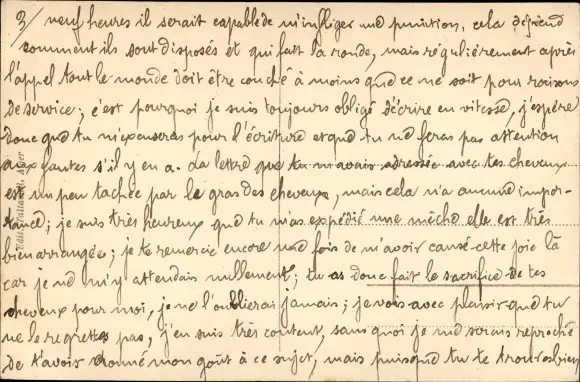 3/ neuf heures il serait capable de m'infliger une punition, cela dépend
comment ils sont disposés et qui fait la ronde, mais régulièrement après
l'appel tout le monde doit être couché à moins que ce ne soit pour raisons
de service; c'est pourquoi je suis toujours obligé d'écrire en vitesse, j'espère
donc que tu m'excuseras pour l'écriture et que tu ne feras pas attention
aux fautes s'il y en a. La lettre que tu m'avais adressée avec tes cheveux
est un peu tachée par le gras des cheveux, mais cela n'a aucune impor-
tance; je suis très heureux que tu m'as expédié une mèche elle est très
bien arrangée; je te remercie encore une fois de m'avoir causé cette joie là
car je ne m'y attendais nullement; tu as donc fait le sacrifice de tes
cheveux pour moi, je ne l'oublierai jamais; je vois avec plaisir que tu
ne le regrettes pas, j'en suis très content, sans quoi je me serais reproché
de t'avoir donné mon goût à ce sujet, mais puisque tu te trouves bien